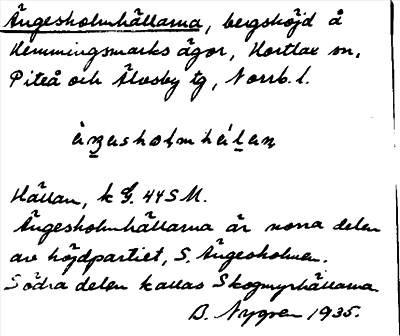 Ängesholmhällarna, bergshöjd å
Hemmingsmarks ägor, Hortlax sn,
Piteå och Älvsby tg, Norrb. l.
Hällan, k G. 44 S M.
Ängesholmhällarna är norra delen
av höjdpartiet, S. Ängesholmen.
Södra delen kallas Skogmyrhällarna
B. Nygren 1935.